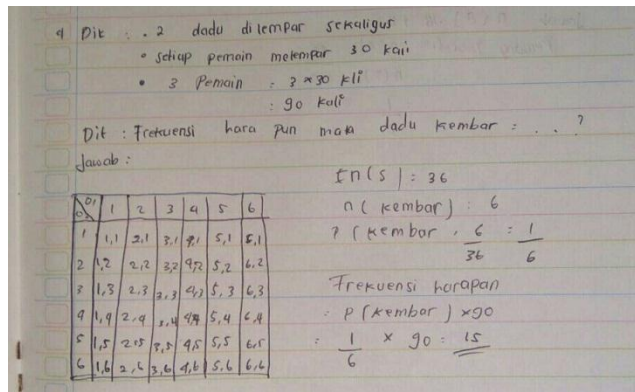 9 Dit : . 2 dadu dilempar sekaligus
• setiap pemain melempar 30 kali
• 3 Pemain : 3 x 30 kli
: 90 kali
Dit : Frekuensi hara pan mata dadu kembar : . . . ?
Jawab :
D1 1 2 3 4 5 6
D2
1 1,1 2,1 3,1 4,1 5,1 6,1
2 1,2 2,2 3,2 4,2 5,2 6,2
3 1,3 2,3 3,3 4,3 5,3 6,3
4 1,4 2,4 3,4 4,4 5,4 6,4
5 1,5 2,5 3,5 4,5 5,5 6,5
6 1,6 2,6 3,6 4,6 5,6 6,6
n(s) : 36
n( kembar) : 6
P ( kembar : 6/36 : 1/6
Frekuensi harapan
: P(kembar) x 90
: 1/6 x 90 : 15